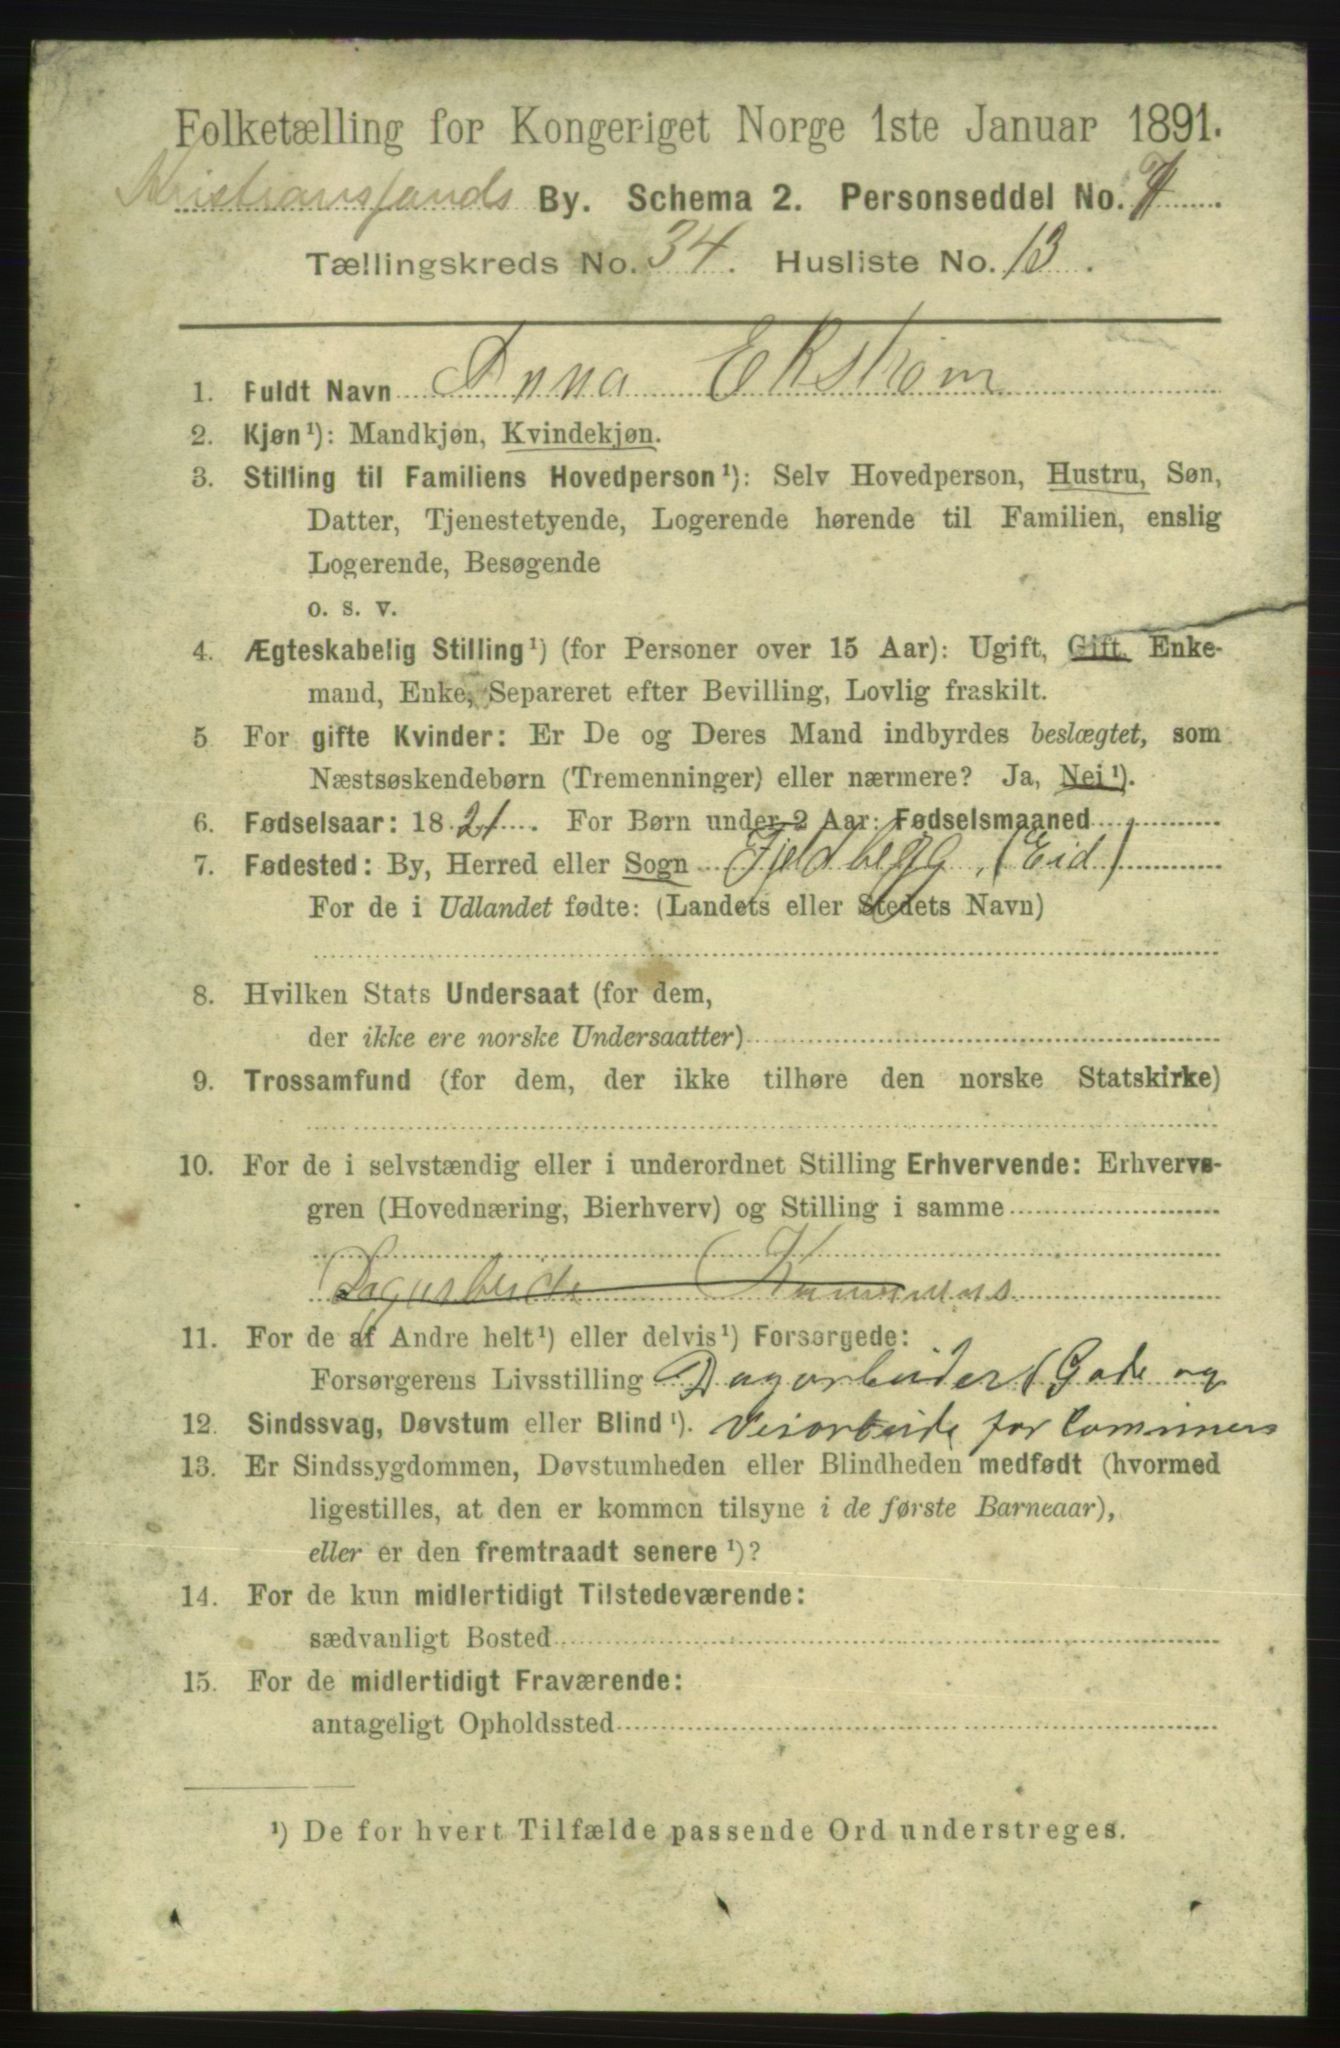 Folketælling for Kongeriget Norge 1ste Januar 1891.
Kristianssands By. Schema 2. Personseddel No.
Tællingskreds No. 34. Husliste No. 13.
1. Fuldt Navn Anna Ekstrøm
2. Kjøn¹): Mandkjøn, Kvindekjøn.
3. Stilling til Familiens Hovedperson¹): Selv Hovedperson, Hustru, Søn,
Datter, Tjenestetyende, Logerende hørende til Familien, enslig
Logerende, Besøgende
o. s. v.
4. Ægteskabelig Stilling¹) (for Personer over 15 Aar): Ugift, Gift, Enke-
mand, Enke, Separeret efter Bevilling, Lovlig fraskilt.
5 For gifte Kvinder: Er De og Deres Mand indbyrdes beslægtet, som
Næstsøskendebørn (Tremenninger) eller nærmere? Ja, Nei¹).
6. Fødselsaar: 1821. For Børn under 2 Aar: Fødselsmaaned
7. Fødested: By, Herred eller Sogn Fjeldbegg, (Eid)
For de i Udlandet fødte: (Landets eller Stedets Navn)
8. Hvilken Stats Undersaat (for dem,
der ikke ere norske Undersaatter)
9. Trossamfund (for dem, der ikke tilhøre den norske Statskirke)
10. For de i selvstændig eller i underordnet Stilling Erhvervende: Erhvervs-
gren (Hovednæring, Bierhverv) og Stilling i samme
Dagarbeide (Kummuns
11. For de af Andre helt¹) eller delvis¹) Forsørgede:
Forsørgerens Livsstilling Dagarbeider (Gade og
12. Sindssvag, Døvstum eller Blind¹). Veiarbeide for Commuen
13. Er Sindssygdommen, Døvstumheden eller Blindheden medfødt (hvormed
ligestilles, at den er kommen tilsyne i de første Barneaar),
eller er den fremtraadt senere¹)?
14. For de kun midlertidigt Tilstedeværende:
sædvanligt Bosted
15. For de midlertidigt Fraværende:
antageligt Opholdssted
¹) De for hvert Tilfælde passende Ord understreges.